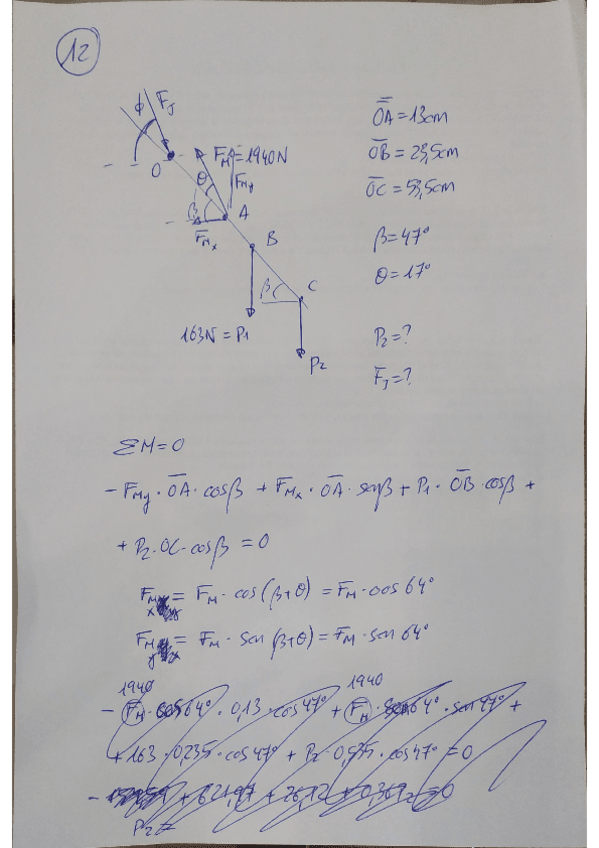 12
ϕ
F_J
O
F_M=1940N
F_My
θ
β
A
F_Mx
B
β
C
163N = P1
P2
OA = 13cm
OB = 23,5cm
OC = 53,5cm
β = 47°
θ = 17°
P2 = ?
F_J = ?
ΣM=0
- F_My · OA · cosβ + F_Mx · OA · senβ + P1 · OB · cosβ +
+ P2 · OC · cosβ = 0
F_Mx = F_M · cos(β+θ) = F_M · cos 64°
F_My = F_M · sen(β+θ) = F_M · sen 64°
1940 1940
- F_M · cos 64° · 0,13 · cos 47° + F_M · sen 64° · sen 47° +
+ 163 · 0,235 · cos 47° + P2 · 0,535 · cos 47° = 0
+ 26,12 + 0,36 = 0
P2 =